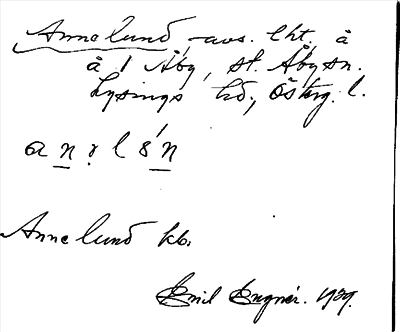 Annelund, avs. lht, å
å 1 Åby, st. Åby sn.
Lysings hd, Österg. l.
a n ə l ɞ́ n
Annelund kb.
Emil Engnér. 1939.